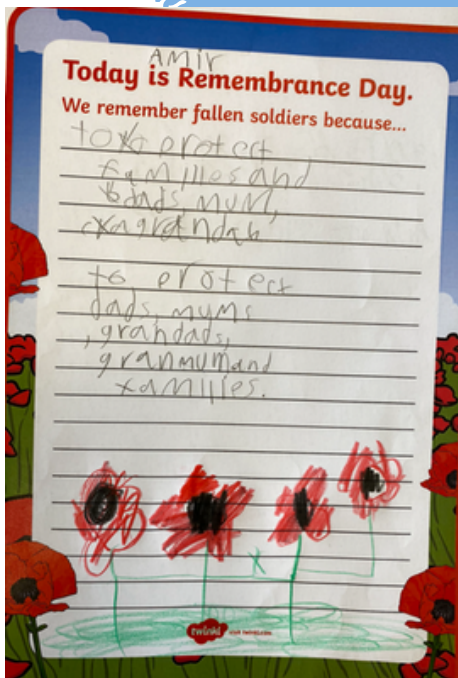 AMIR
Today is Remembrance Day.
We remember fallen soldiers because...
to protect
families and
dads, mum,
grandad
to protect
dads, mums
, grandads,
granmum and
families.
twinkl visit twinkl.com